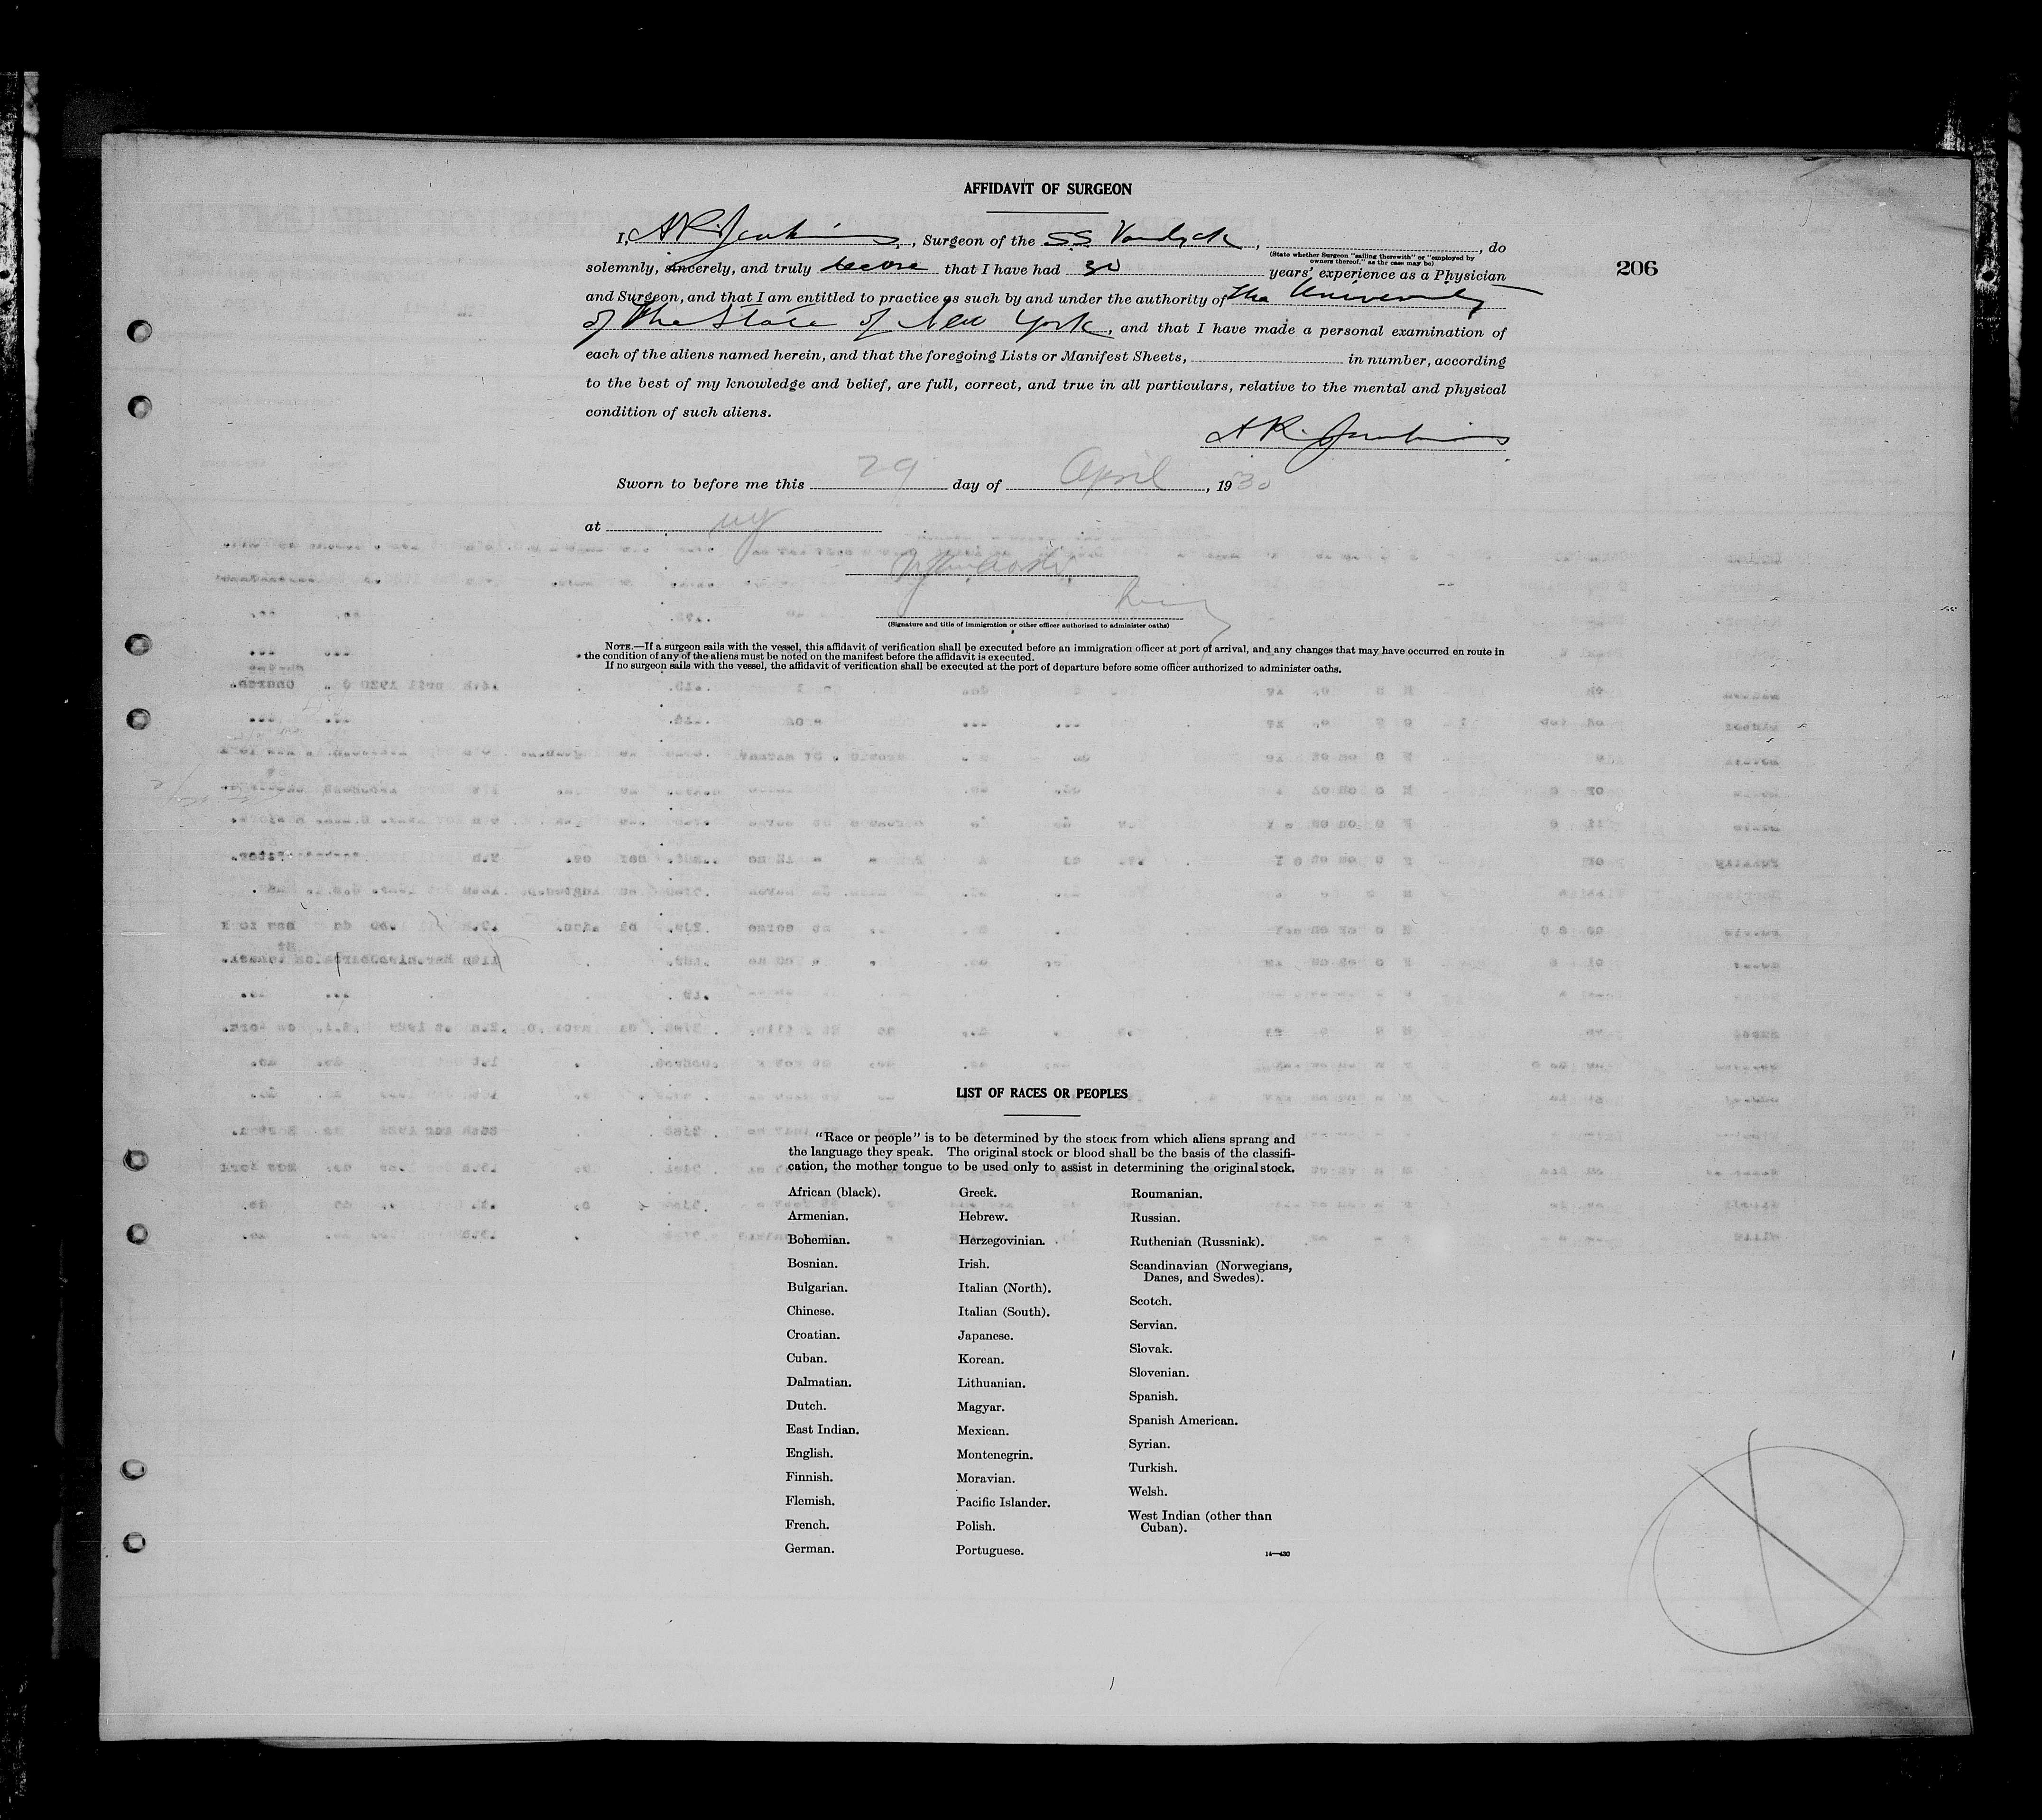 AFFIDAVIT OF SURGEON
I, A R Jenkins, Surgeon of the S.S. Vandyck, , do
(State whether Surgeon "sailing therewith" or "employed by
owners thereof," as the case may be)
solemnly, sincerely, and truly that I have had 30 years' experience as a Physician
206
and Surgeon, and that I am entitled to practice as such by and under the authority of The University
of The State of New York, and that I have made a personal examination of
each of the aliens named herein, and that the foregoing Lists or Manifest Sheets, in number, according
to the best of my knowledge and belief, are full, correct, and true in all particulars, relative to the mental and physical
condition of such aliens.
A R. Jenkins
Sworn to before me this 29 day of April, 1930
at NY
(Signature and title of immigration or other officer authorized to administer oaths)
NOTE.—If a surgeon sails with the vessel, this affidavit of verification shall be executed before an immigration officer at port of arrival, and any changes that may have occurred en route in
the condition of any of the aliens must be noted on the manifest before the affidavit is executed.
If no surgeon sails with the vessel, the affidavit of verification shall be executed at the port of departure before some officer authorized to administer oaths.
LIST OF RACES OR PEOPLES
"Race or people" is to be determined by the stock from which aliens sprang and
the language they speak. The original stock or blood shall be the basis of the classifi-
cation, the mother tongue to be used only to assist in determining the original stock.
African (black).
Armenian.
Bohemian.
Bosnian.
Bulgarian.
Chinese.
Croatian.
Cuban.
Dalmatian.
Dutch.
East Indian.
English.
Finnish.
Flemish.
French.
German.
Greek.
Hebrew.
Herzegovinian.
Irish.
Italian (North).
Italian (South).
Japanese.
Korean.
Lithuanian.
Magyar.
Mexican.
Montenegrin.
Moravian.
Pacific Islander.
Polish.
Portuguese.
Roumanian.
Russian.
Ruthenian (Russniak).
Scandinavian (Norwegians,
Danes, and Swedes).
Scotch.
Servian.
Slovak.
Slovenian.
Spanish.
Spanish American.
Syrian.
Turkish.
Welsh.
West Indian (other than
Cuban).
14—430